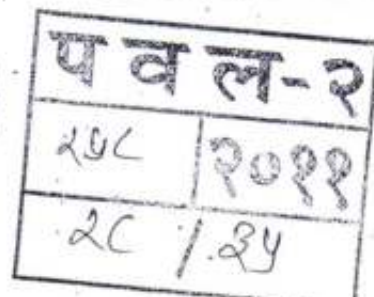 प व ल - २
२५८ २०११
२८ / ३५